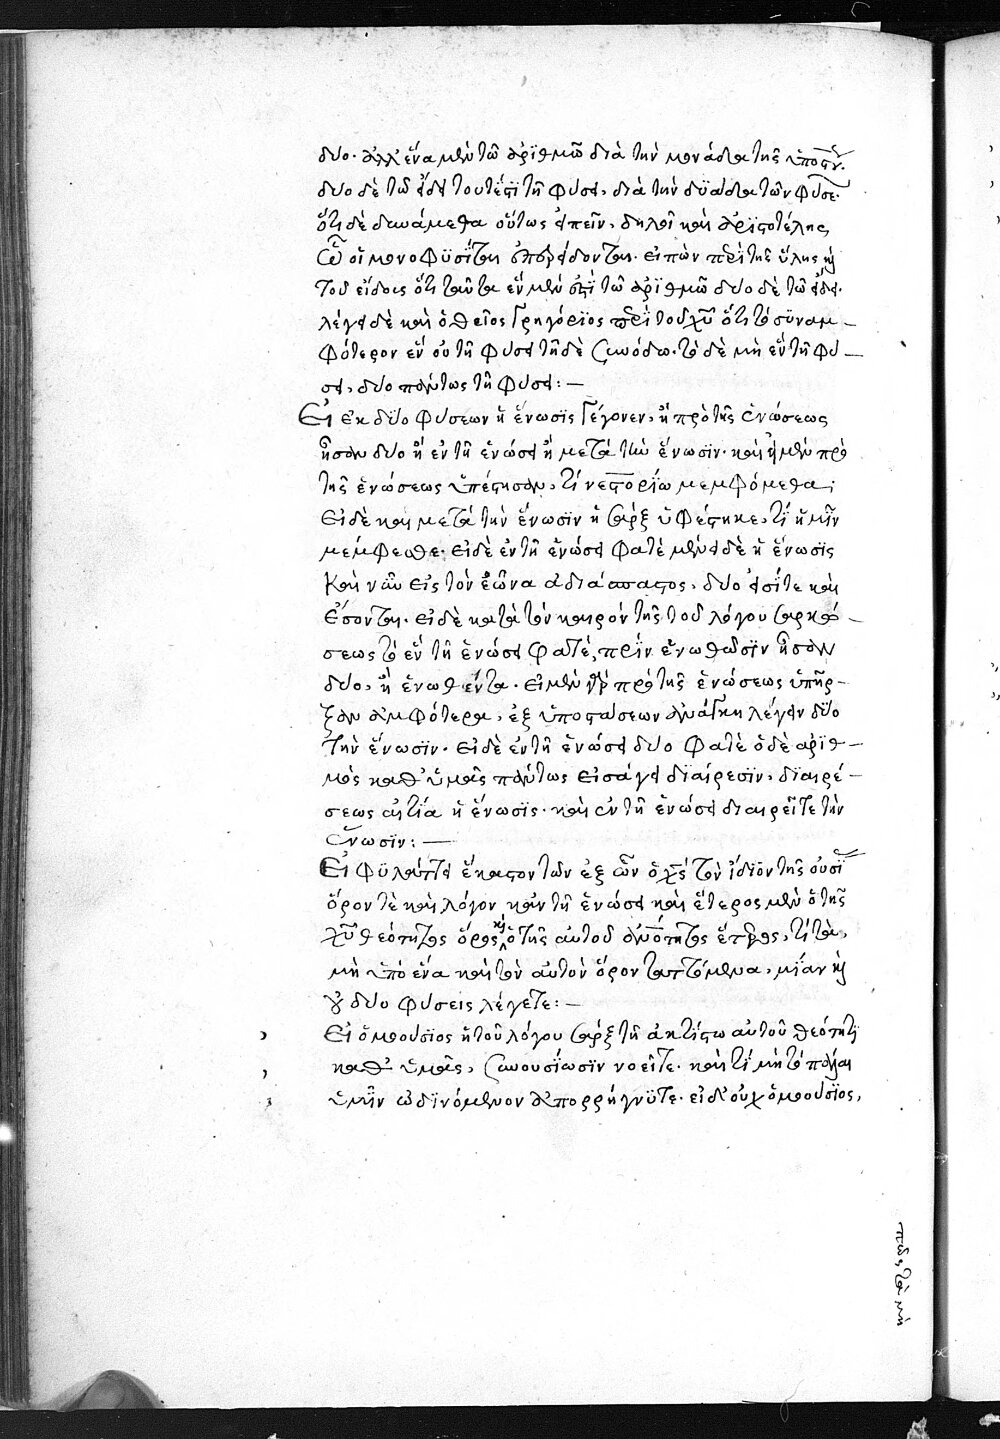 δυο· ἀλλ' ἕνα μὲν τῶ ἀρϊθμῶ διὰ τὴν μονάδα τῆς ὑποστ
δυο δὲ τῶ εἴδει τουτέστι τῆ φύσει, διὰ τὴν δϋάδα τῶν φύσε·
ὅτι δὲ δυνάμεθα οὕτως εἰπεῖν, δηλοῖ καὶ ἀρϊστοτέλης
ὧ οἱ μονοφϋσῖται ἐπερείδονται· εἰπὼν περὶ τῆς ὕλης καὶ
τοῦ εἴδους ὅτι ταῦτα ἓν μὲν ἐπὶ τῶ ἀρϊθμῶ δυο δὲ τῶ εἴδει·
λέγει δὲ καὶ ὁ θεῖος Γρηγόριος περὶ τοῦ χυ ὅτι τὸ σϋναμ-
φότερον ἓν οὐ τῆ φύσει τῆ δὲ συνόδω· τὸ δὲ μὴ ἓν τῆ φύ-
σει, δυο πάντως τῆ φύσει: -
Εἰ ἐκ δϋο φύσεων ἡ ἕνωσϊς γέγονεν, ἢ πρὸ τῆς ἑνώσεως
ἦσαν δυο ἢ ἐν τῆ ἑνώσει ἢ μετὰ τὴν ἕνωσϊν· καὶ εἰ μὲν πρὸ
τῆς ἑνώσεως ὑπέστησαν, τί νεστορίω μεμφόμεθα;
Εἰ δὲ καὶ μετὰ τὴν ἕνωσϊν ἡ σὰρξ ὑφέστηκε, τί ἡμῖν
μέμφεσθε· εἰ δὲ ἐν τῆ ἑνώσει φατὲ μὲν εἰ δὲ ἡ ἕνωσϊς
καὶ νῦν εἰς τὸν αἰῶνα ἀδιάσπαστος, δυο εἰσί τε καὶ
ἔσονται· εἰ δὲ κατὰ τὸν καιρὸν τῆς τοῦ λόγου σαρκώ-
σεως τὸ ἐν τῆ ἑνώσει φατὲ, πρὶν ἑνωθῶσϊν ἦσαν
δυο, ἢ ἑνωθέντα· εἰ μὲν γὰρ πρὸ τῆς ἑνώσεως ὑπῆρ-
ξαν ἀμφότερα, ἐξ ὑποστάσεων ἀνάγκη λέγειν δϋο
τὴν ἕνωσϊν· εἰ δὲ ἐν τῆ ἑνώσει δυο φατὲ ὁ δὲ ἀρϊθ-
μὸς καθ' ὑμᾶς πάντως εἰσάγει διαίρεσϊν, διαιρέ-
σεως αἰτία ἡ ἕνωσϊς· καὶ ἐν τῆ ἑνώσει διαιρεῖτε τὴν
ἕνωσϊν: -
Εἰ φϋλάττει ἕκαστον τῶν ἐξ ὧν ὁ χς τὸν ἴδϊον τῆς οὐσί
ὅρον τὲ καὶ λόγον κἀν τῆ ἑνώσει καὶ ἕτερος μὲν ὁ τῆς
χυ θεότητος ὅρος καὶ ὁ τῆς αὐτοῦ ἀνότητος ἕτερος, τί τὰ
μὴ ὑπὸ ἕνα καὶ τὸν αὐτὸν ὅρον ταττόμενα, μίαν καὶ
οὐ δυο φύσεις λέγετε: -
Εἰ ὁμοούσϊος ἡ τοῦ λόγου σὰρξ τῆ ἀκτίστω αὐτοῦ θεότητι
καθ' ὑμᾶς, συνουσίωσϊν νοεῖτε· καὶ τί μὴ τὸ πάλαι
ὑμῖν ὠδϊνόμενον ἀπορρήγνϋτε· εἰ δ' οὐχ ὁμοούσϊος,
πῶς τὰ μὴ